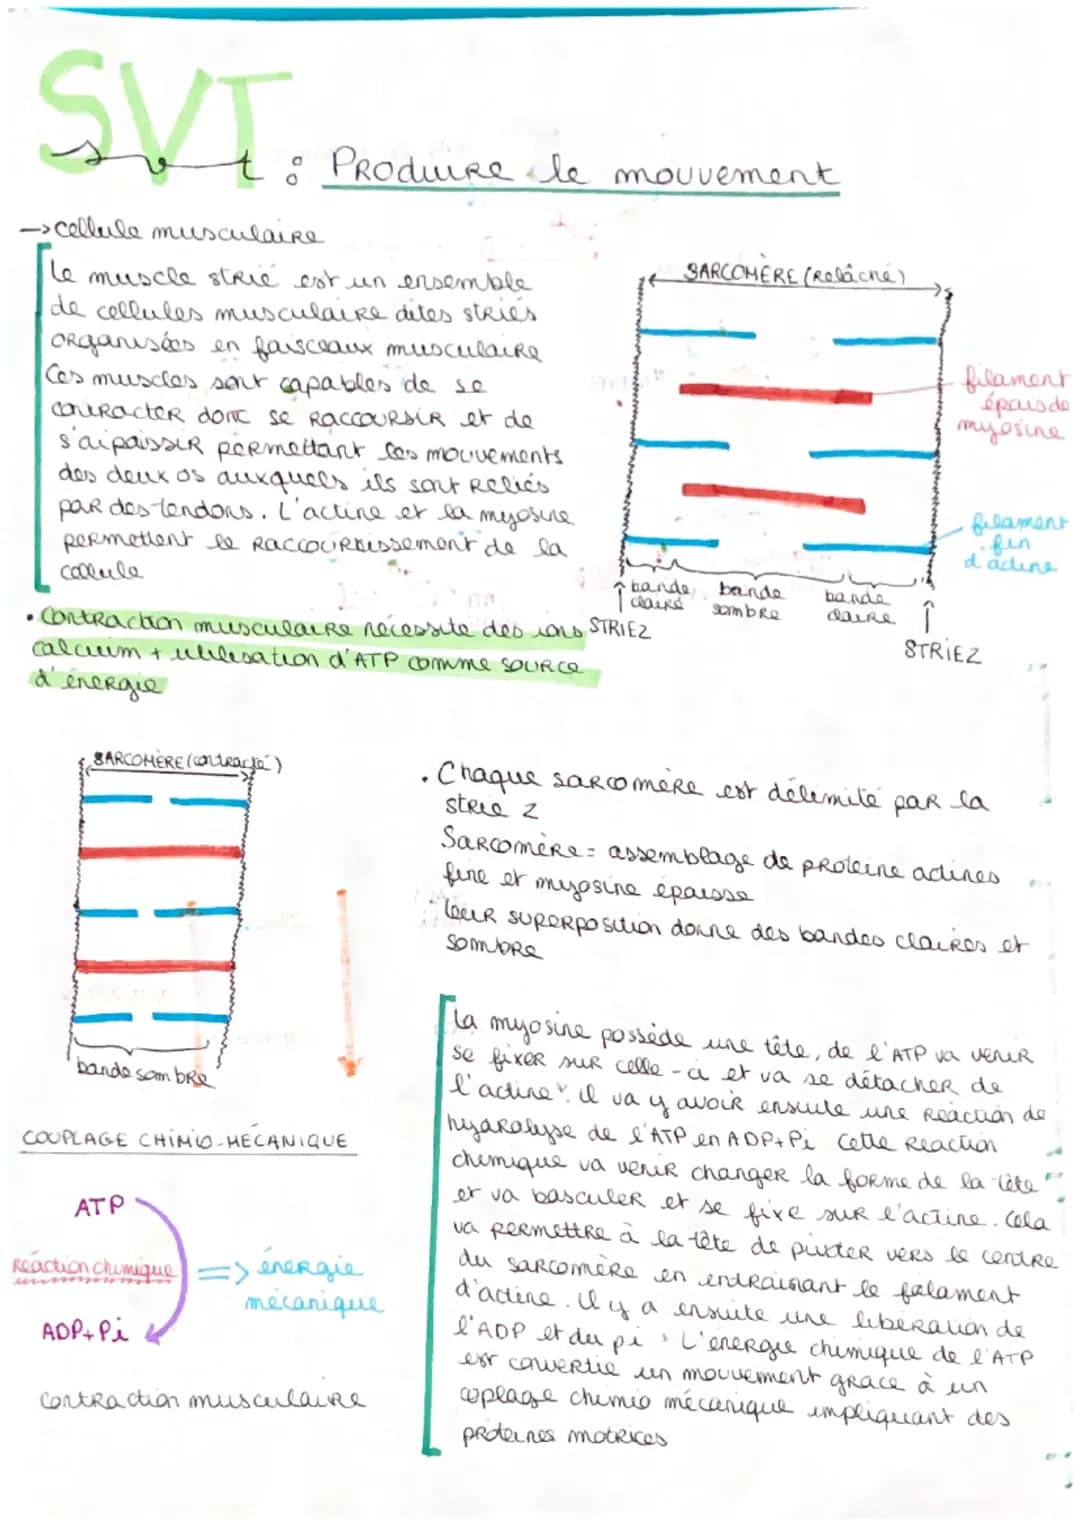 SVT
svt : Produire le mouvement
→ cellule musculaire
Le muscle strié est un ensemble
de cellules musculaire dites striés
organisées en faisceaux musculaire
Ces muscles sont capables de se
contracter donc se raccoursir et de
s'aipaissir permettant les mouvements
des deux os auxquels ils sont reliés
par des tendons. L'actine et la myosine
permettent le raccourcissement de la
cellule
• contraction musculaire nécessite des ions
calcium + utilisation d'ATP comme source
d'énergie
SARCOMÈRE (Relâché)
filament
épais de
myosine
filament
fin
d'actine
bande claire
bande sombre
bande claire
STRIEZ
STRIEZ
SARCOMÈRE (contracté)
bande sombre
• Chaque sarcomère est délimité par la
strie z
Sarcomère = assemblage de proteine actines
fine et myosine épaisse
leur superposition donne des bandes claires et
sombre
COUPLAGE CHIMIO-MÉCANIQUE
ATP
Réaction chimique => énergie
mécanique
ADP+Pi
contraction musculaire
La myosine possède une tête, de l'ATP va venir
se fixer sur celle-ci et va se détacher de
l'actine. il va y avoir ensuite une réaction de
hydralyse de l'ATP en ADP+Pi. Cette Reaction
chimique va venir changer la forme de la tête
et va basculer et se fixe sur l'actine. Cela
va permettre à la tête de pivoter vers le centre
du sarcomère en entrainant le filament
d'actine. il y a ensuite une libération de
l'ADP et du pi. L'énergie chimique de l'ATP
est convertie un mouvement grace à un
coplage chimio mécanique impliquant des
protéines motrices